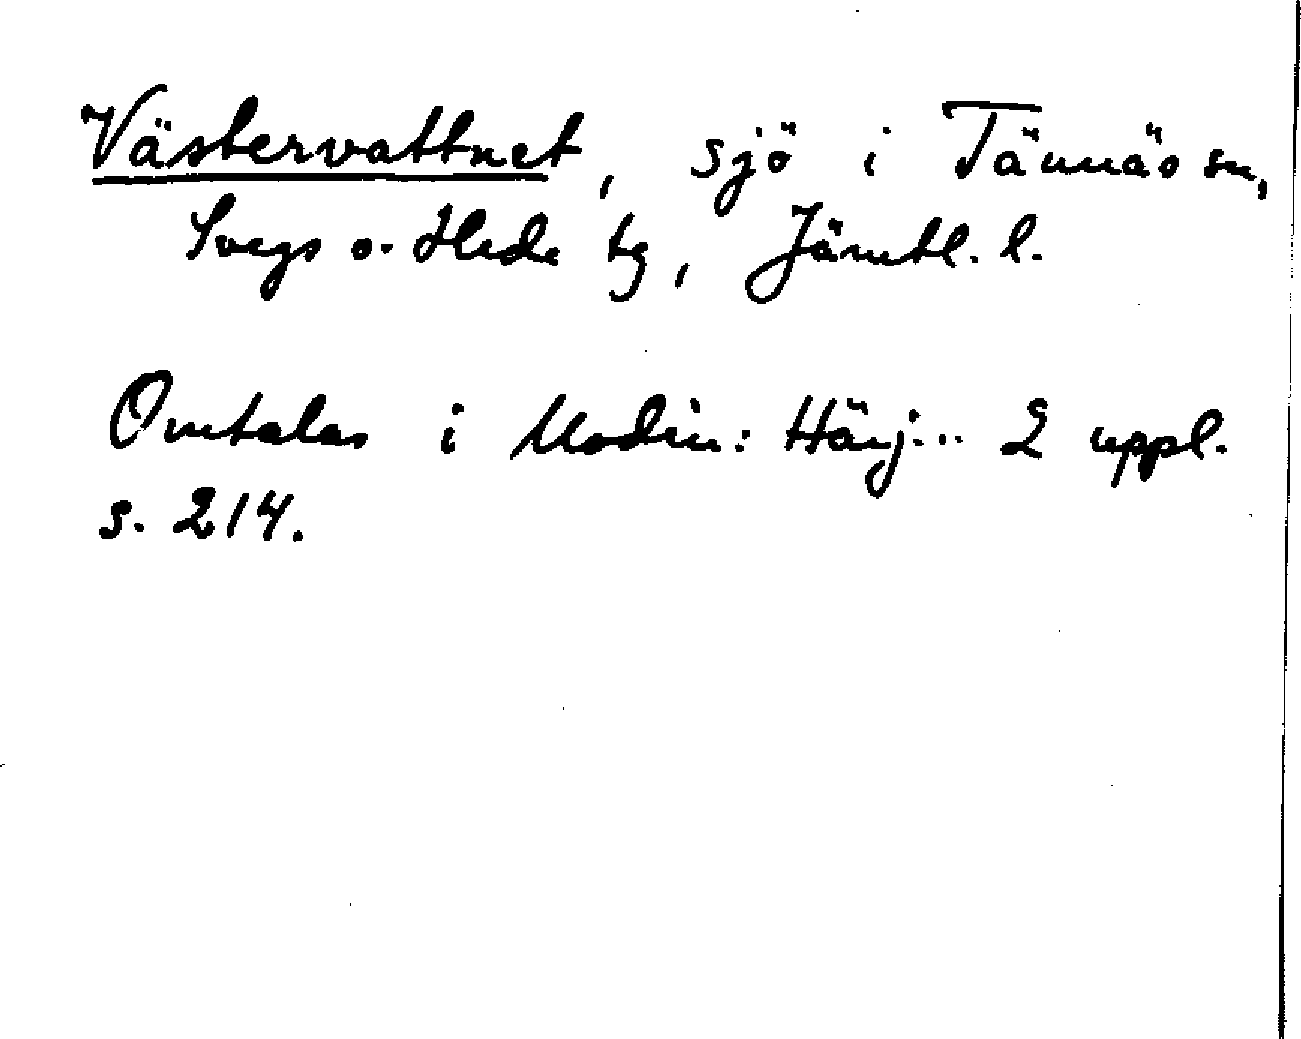 Västervattnet, sjö i Tännäs sn,
Svegs o. Hede tg, Jämtl. l.
Omtalas i Modin: Härj... 2 uppl.
s. 214.